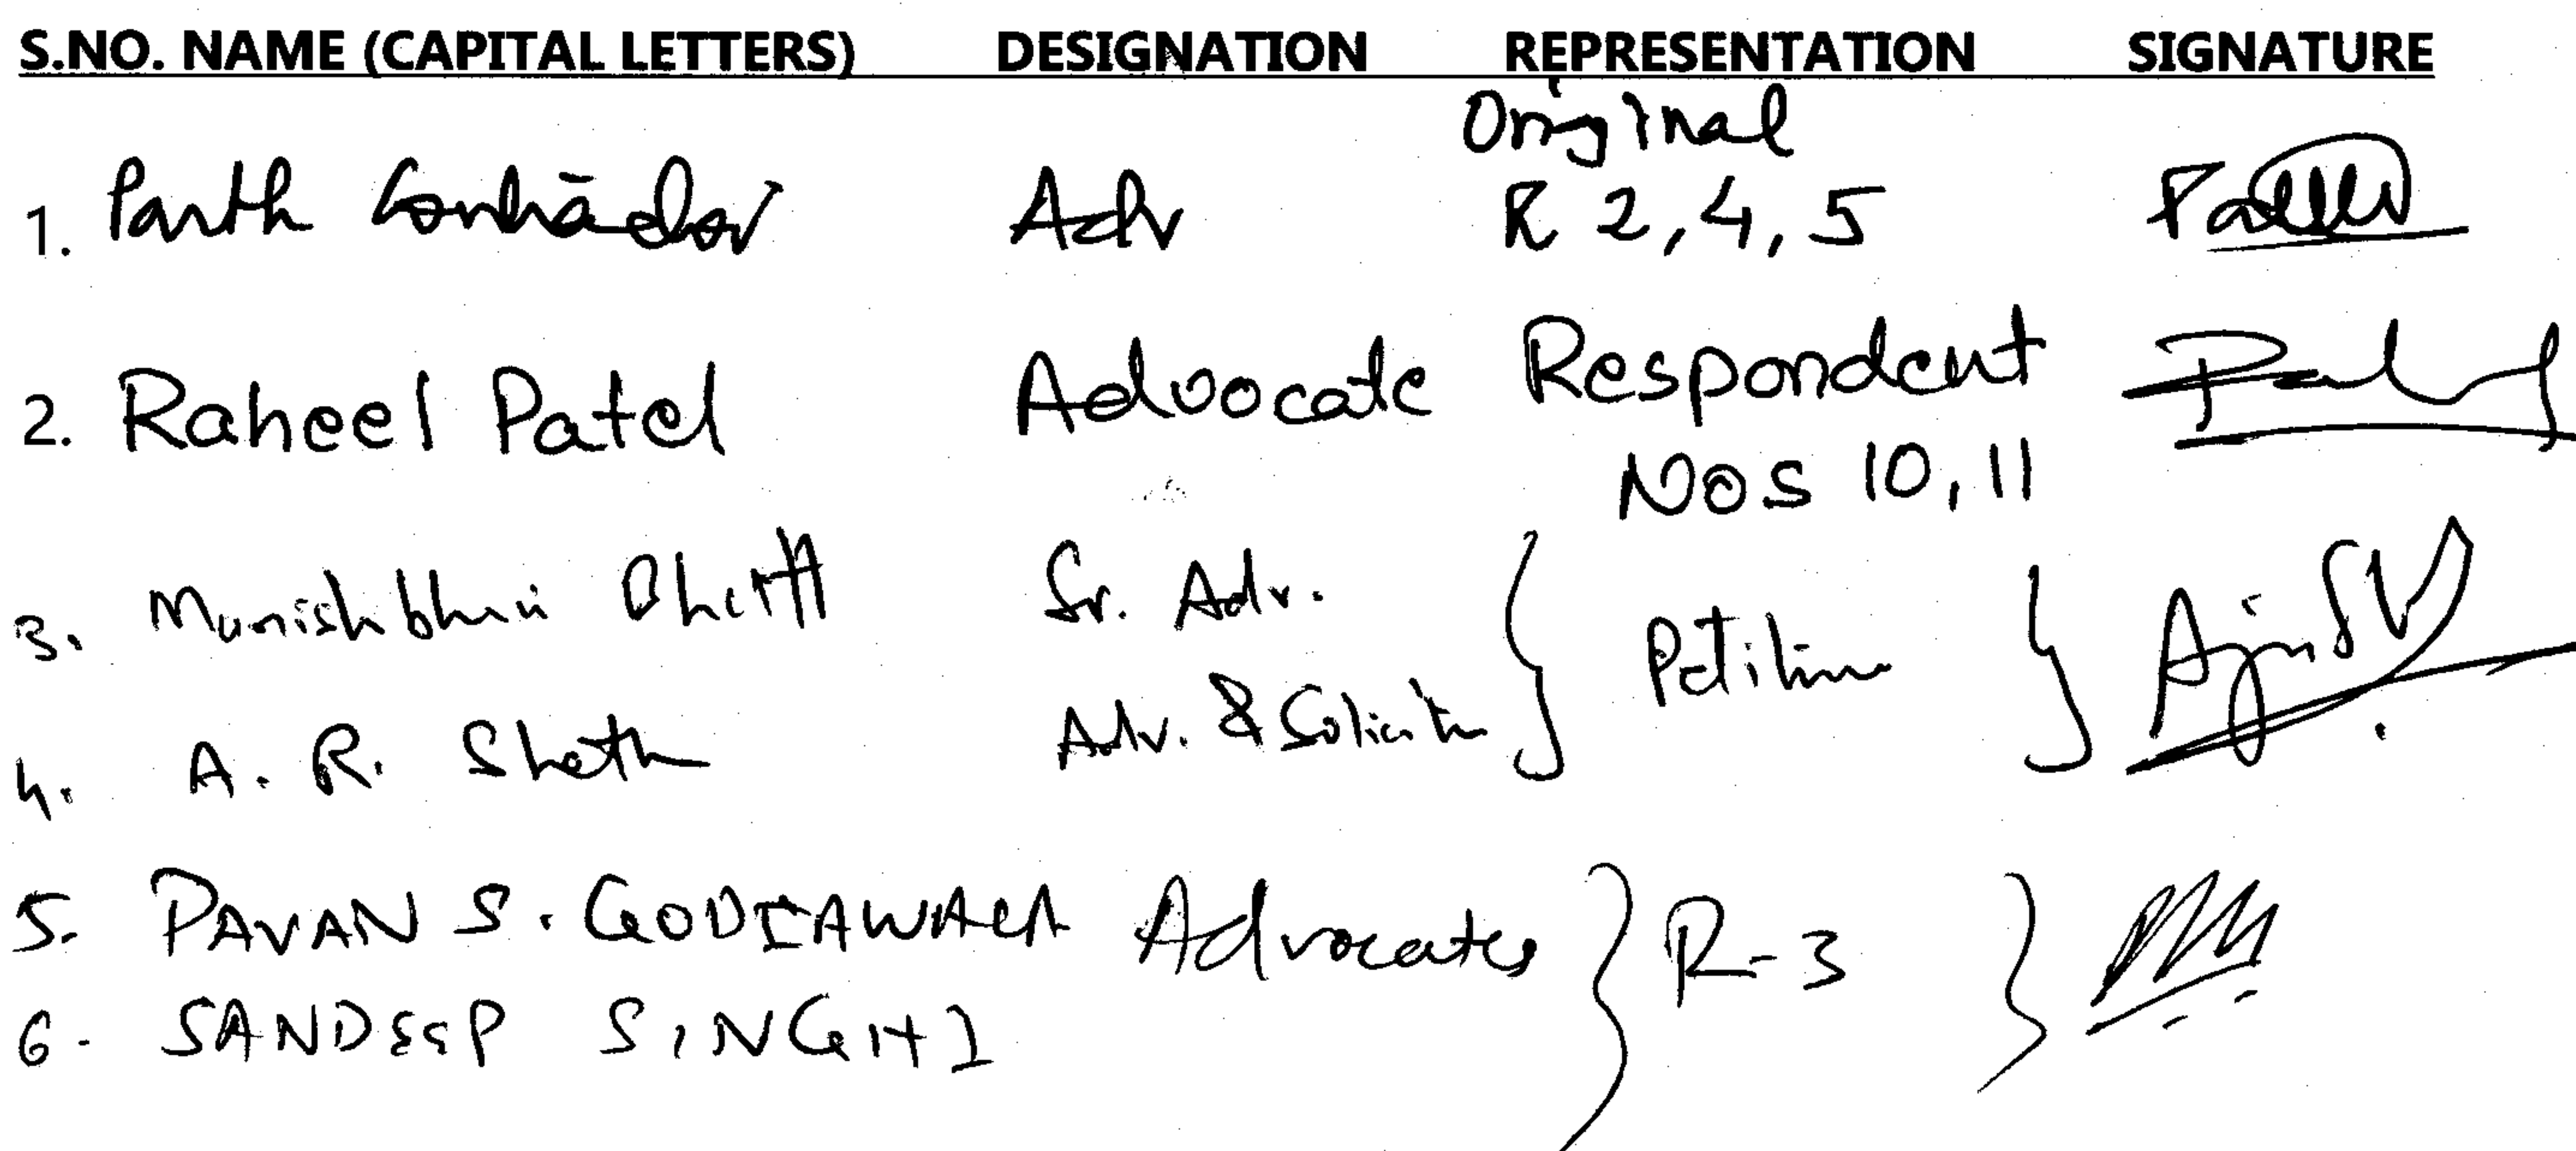 S.NO. NAME (CAPITAL LETTERS) DESIGNATION REPRESENTATION SIGNATURE
Original
1. Parth Adv R 2,4,5
2. Raheel Patel Advocate Respondent
Nos 10, 11
3. Manishbhai Bhatt Sr. Adv.
Petition
4. A. R. Sheth Adv. & Solicitor
5. PAVAN S. GODIAWALA Advocates R-3
6. SANDEEP SINGHI